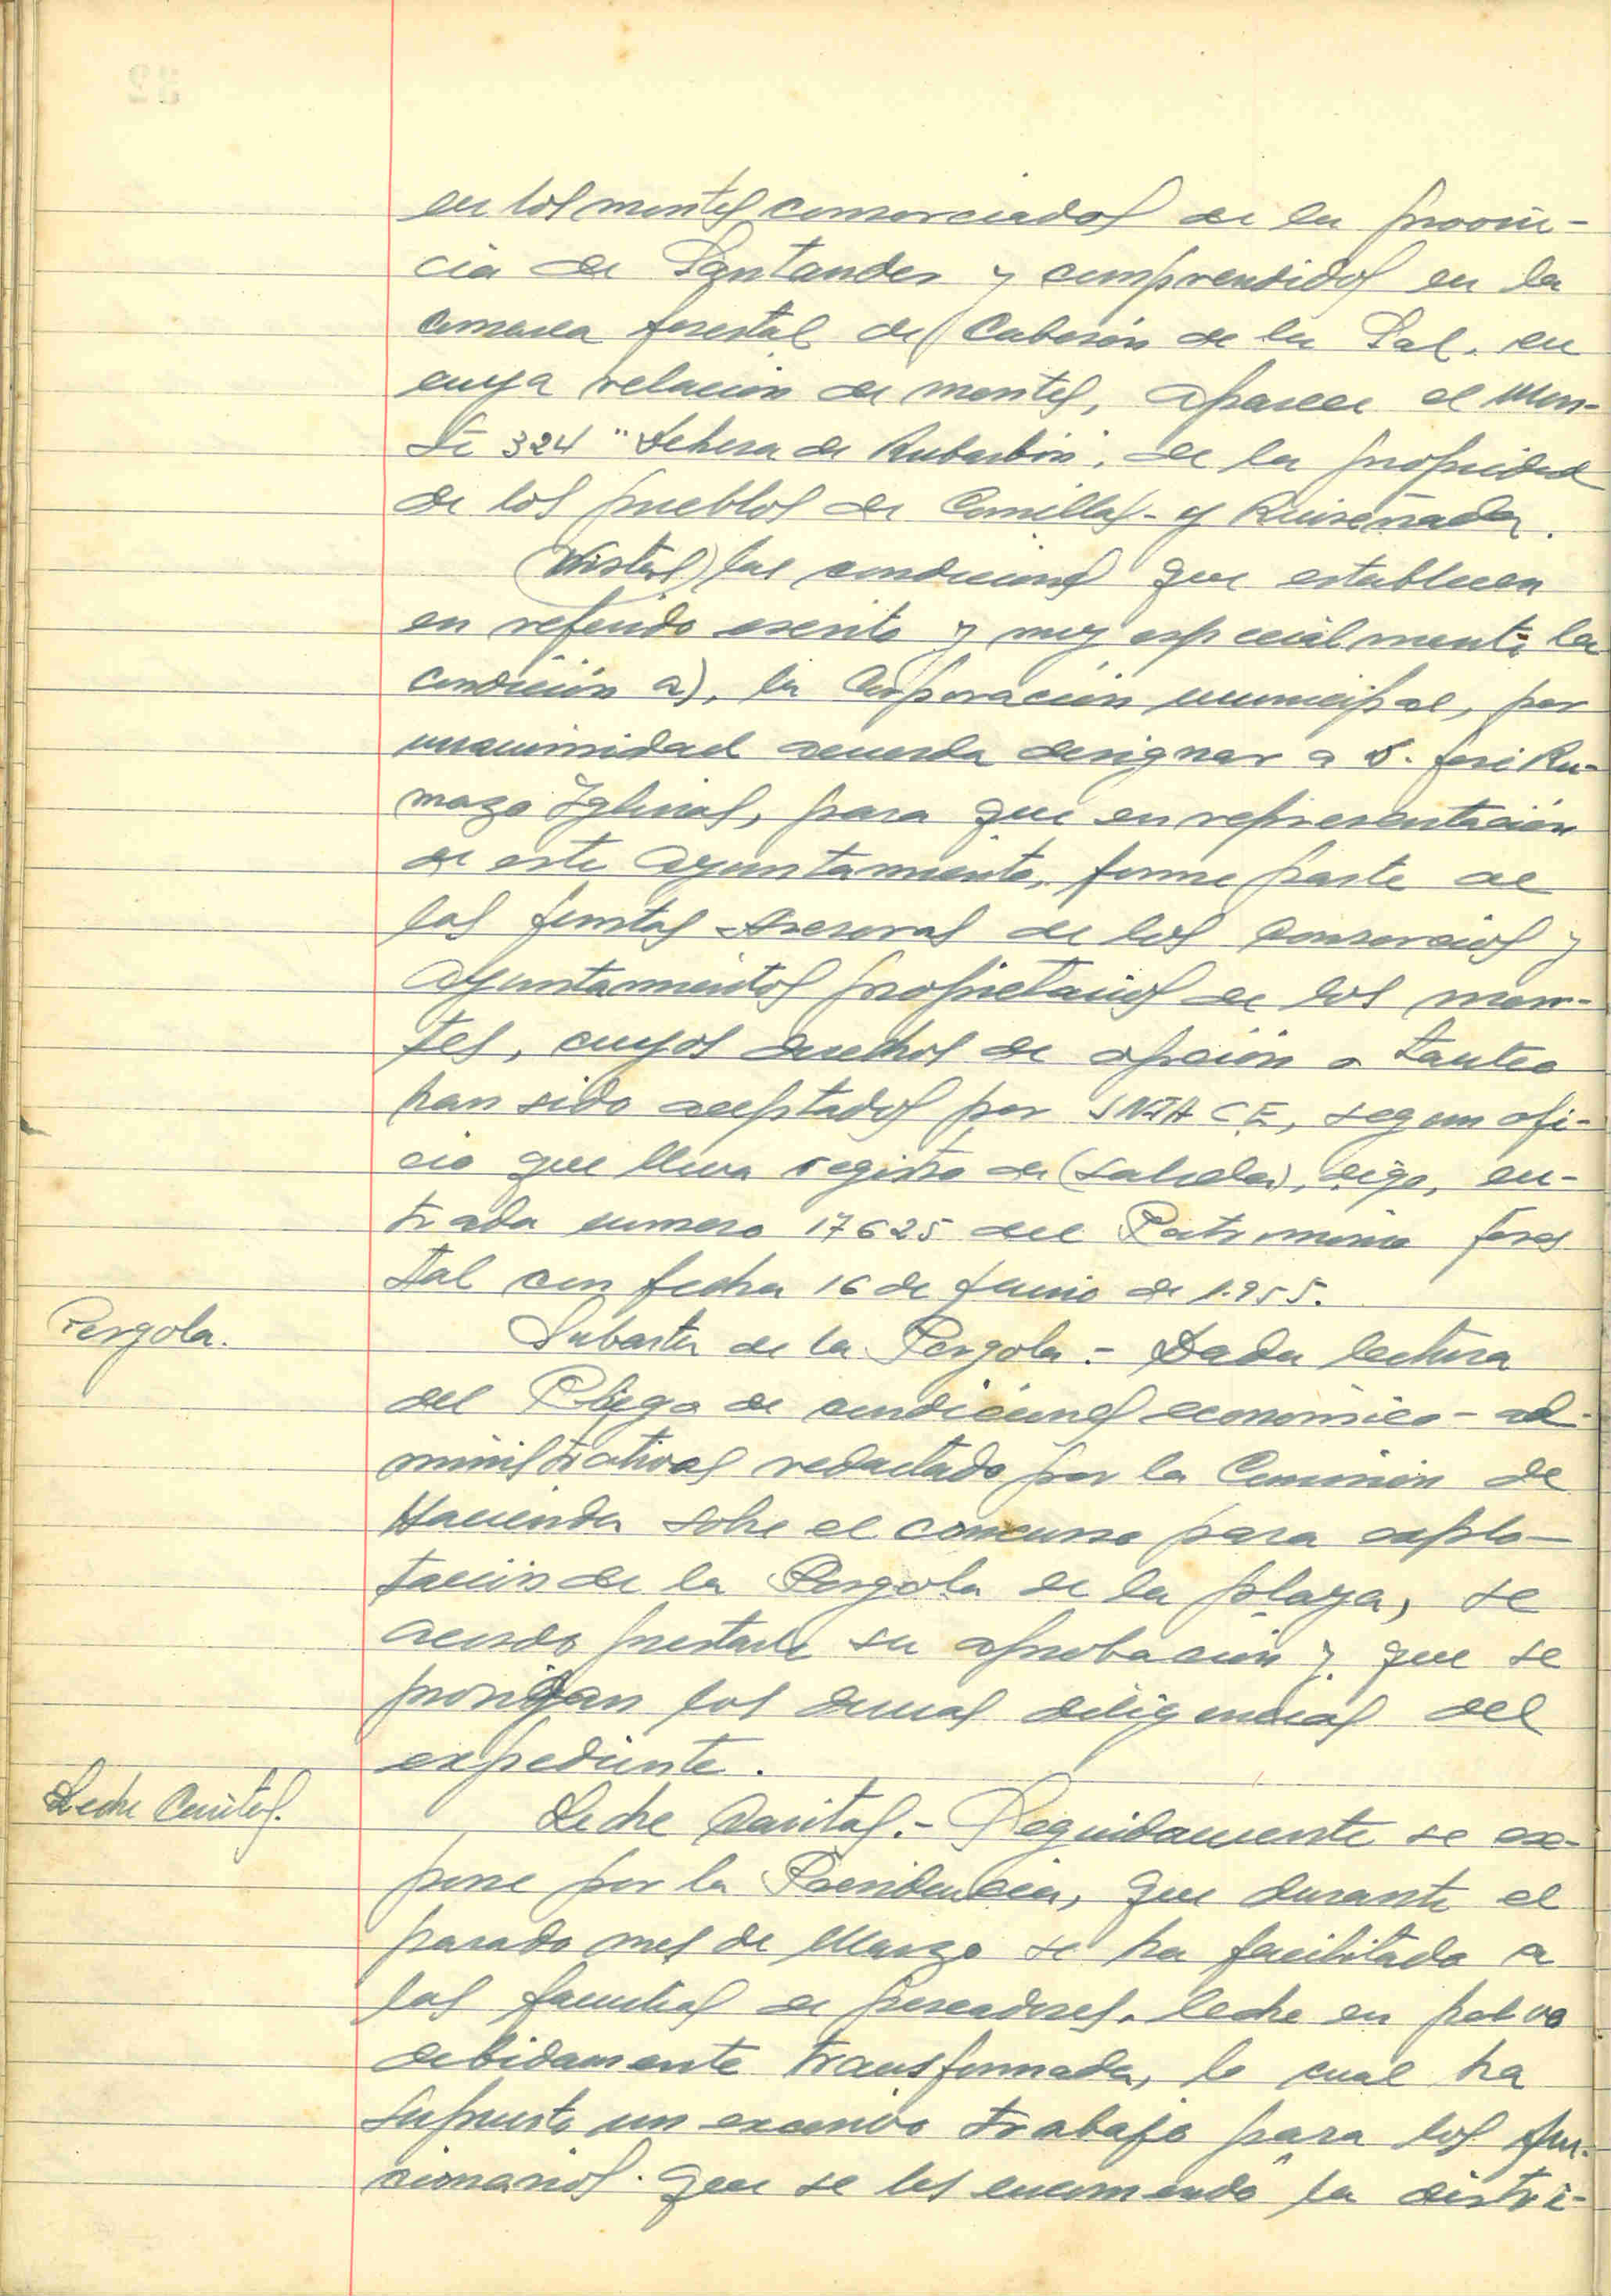 en los montes consorciados de la provin-
cia de Santander y comprendidos en la
comarca forestal de Cabezón de la Sal, en
cuya relación de montes, aparece el Mon-
te 324 "Dehesa de Rubarbón", de la propiedad
de los pueblos de Comillas- y Ruiseñada.
(Vistas) las condiciones que establecen
en referido escrito y muy especialmente la
condición a), la Corporación municipal, por
unanimidad acuerda designar a D. José Ru-
mazo Iglesias, para que en representación
de este Ayuntamiento, forme parte de
las Juntas Asesoras de los consorcios y
Ayuntamientos propietarios de los mon-
tes, cuyos derechos de opción o tanteo
han sido aceptados por SNIACE, segun ofi-
cio que lleva registro de (salida), digo, en-
trada numero 17625 del Patrimonio Fores
tal con fecha 16 de Junio de 1.955.
Pergola.
Subasta de la Pergola.- Dada lectura
del Pliego de condiciones economico-ad-
ministrativas redactado por la Comisión de
Hacienda sobre el concurso para explo-
tación de la Pergola de la playa, se
acordo prestarle su aprobación y que se
prosigan las demas diligencias del
expediente.
Leche Caritas.
Leche Caritas.- Seguidamente se ex-
pone por la Presidencia, que durante el
pasado mes de Marzo se ha facilitado a
las familias de pescadores, leche en polvo
debidamente transformada, lo cual ha
supuesto un excesivo trabajo para los fun-
cionarios que se les encomendó la distri-